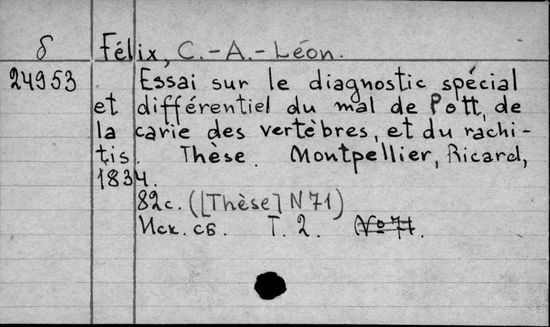 δ Félix, C.-A.-Léon.
24953 Essai sur le diagnostic spécial
et différentiel du mal de Pott, de
la carie des vertèbres, et du rachi-
tis. Thèse. Montpellier, Ricard,
1834.
82c. ([Thèse] N 71)
Иск. сб. Т. 2. (№ 71.